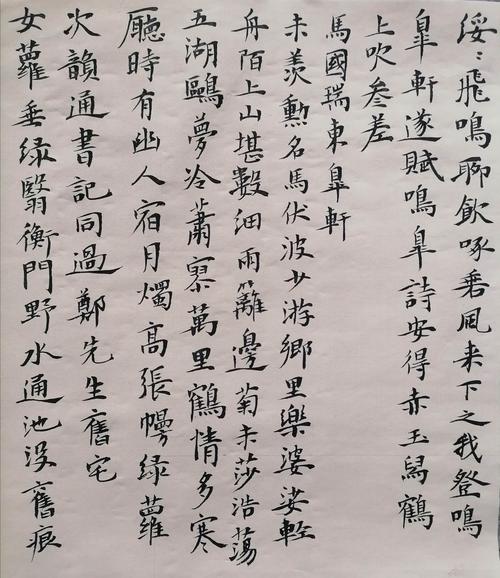 綏〻飛鳴聊飲啄乘風来下之我登鳴
皐軒遂賦鳴皐詩安得赤玉舄鶴
上吹參差
馬國瑞東皐軒
未羨勲名馬伏波少游鄉里樂婆娑輕
舟陌上山堪數細雨籬邊菊未莎浩蕩
五湖鷗夢冷蕭寥萬里鶴情多寒
廳時有幽人宿月燭高張幔綠蘿
次韻通書記同過鄭先生舊宅
女蘿垂绿翳衡門野水通池没舊痕